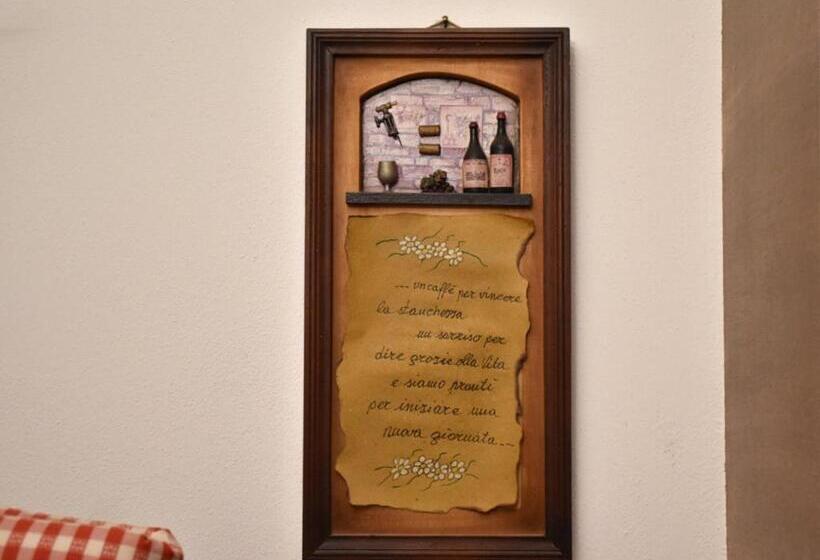 ... un caffè per vincere
la stanchezza
un sorriso per
dire grazie alla Vita
e siamo pronti
per iniziare una
nuova giornata...